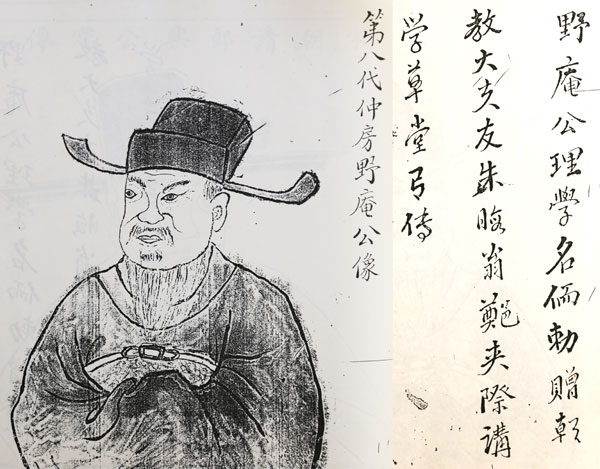 野庵公理學名儒勅贈朝
教大夫友朱晦翁鄭夾際講
学草堂弓傳
第八代仲房野庵公像